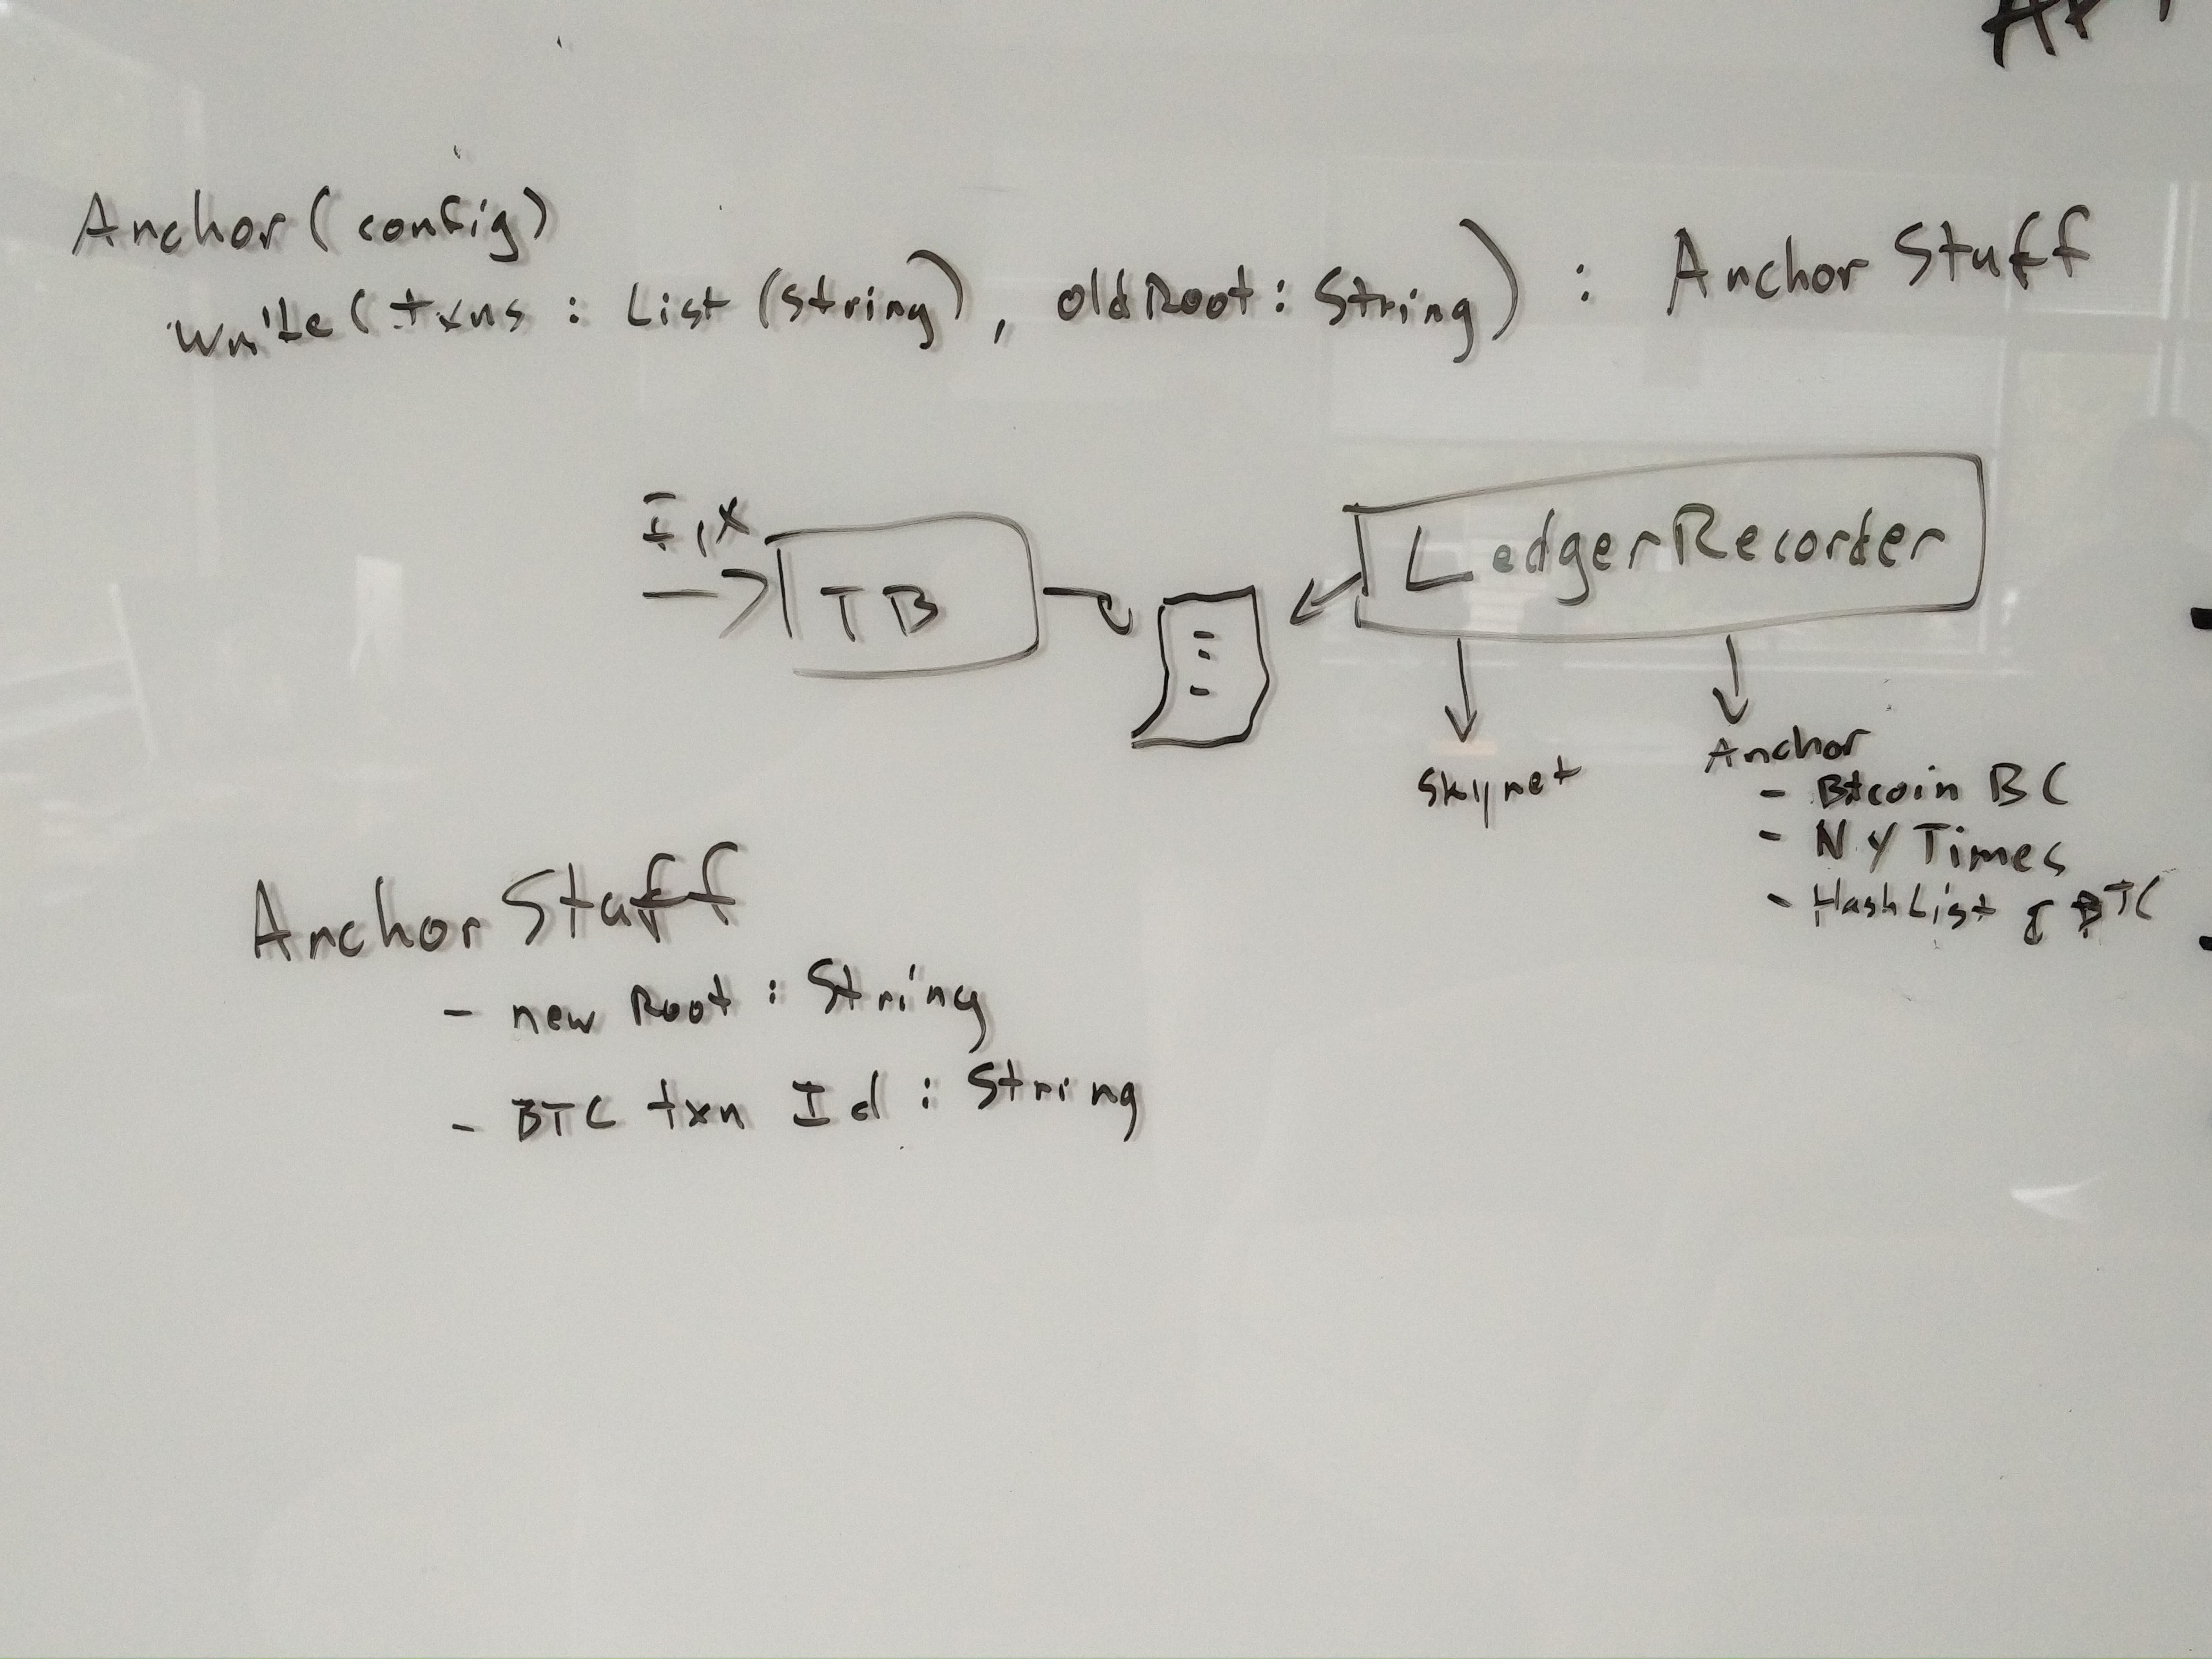 Anchor (config)
write (txns : List (string), oldRoot : String) : Anchor Stuff
Fix
TB
LedgerRecorder
Skynet
Anchor
- Bitcoin BC
- NY Times
- HashList & BTC
Anchor Stuff
- new Root : String
- BTC txn Id : String